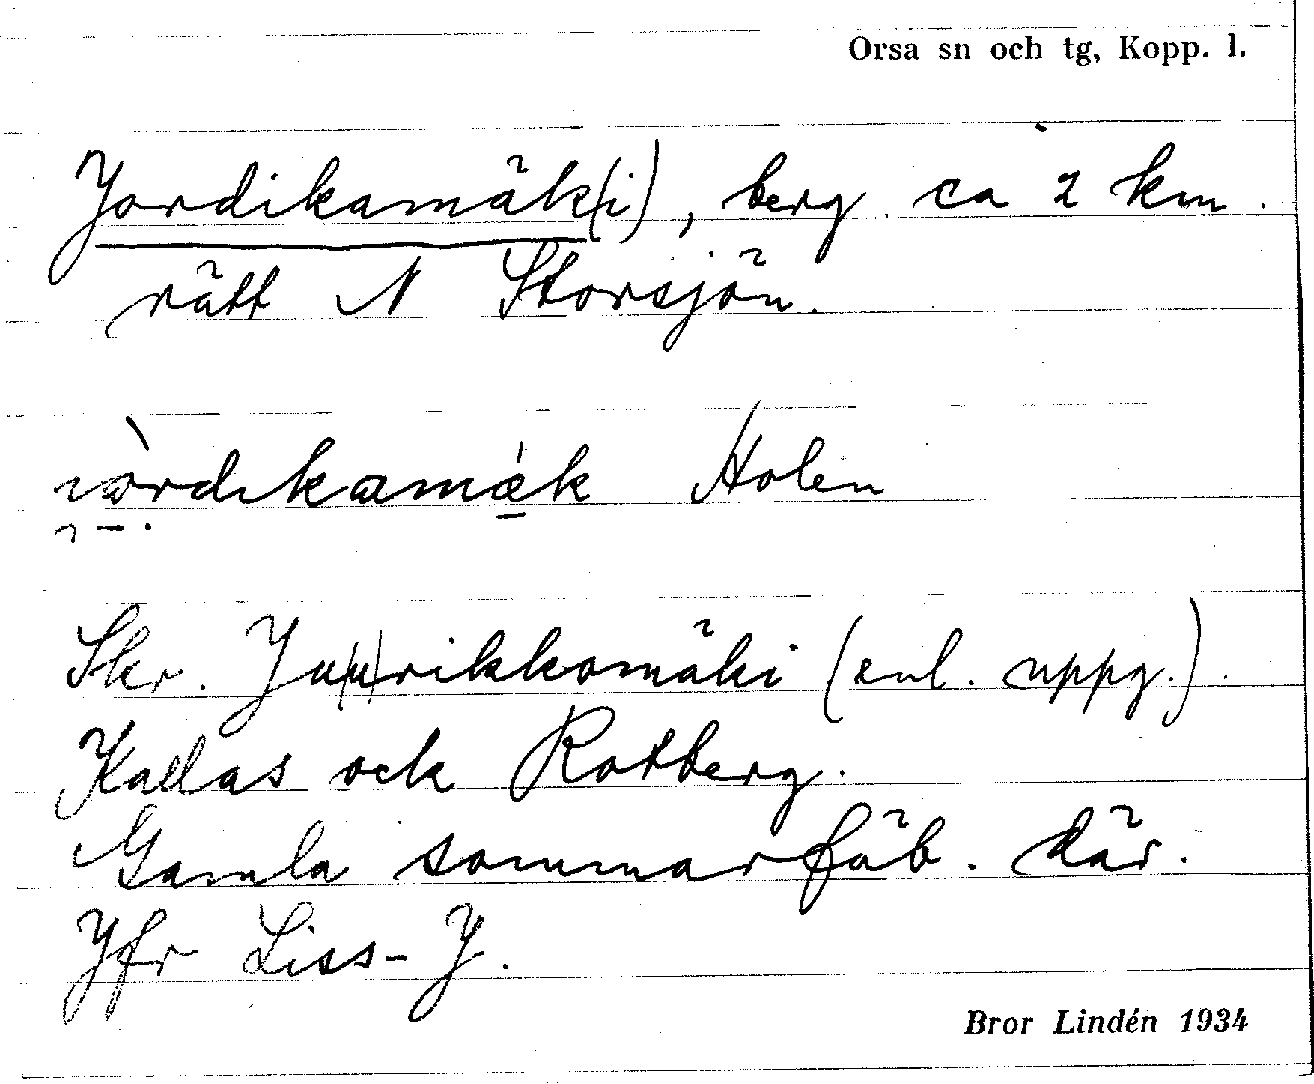 Orsa sn och tg, Kopp. l.
Jordikamäk(i), berg ca 2 km
rätt N Storsjön.
Holen
Skr. Ju(u)rikkomäki (enl. uppg.).
Kallas ock Rotberg.
Gamla sommarfäb. där.
Jfr Liss-J.
Bror Lindén 1934